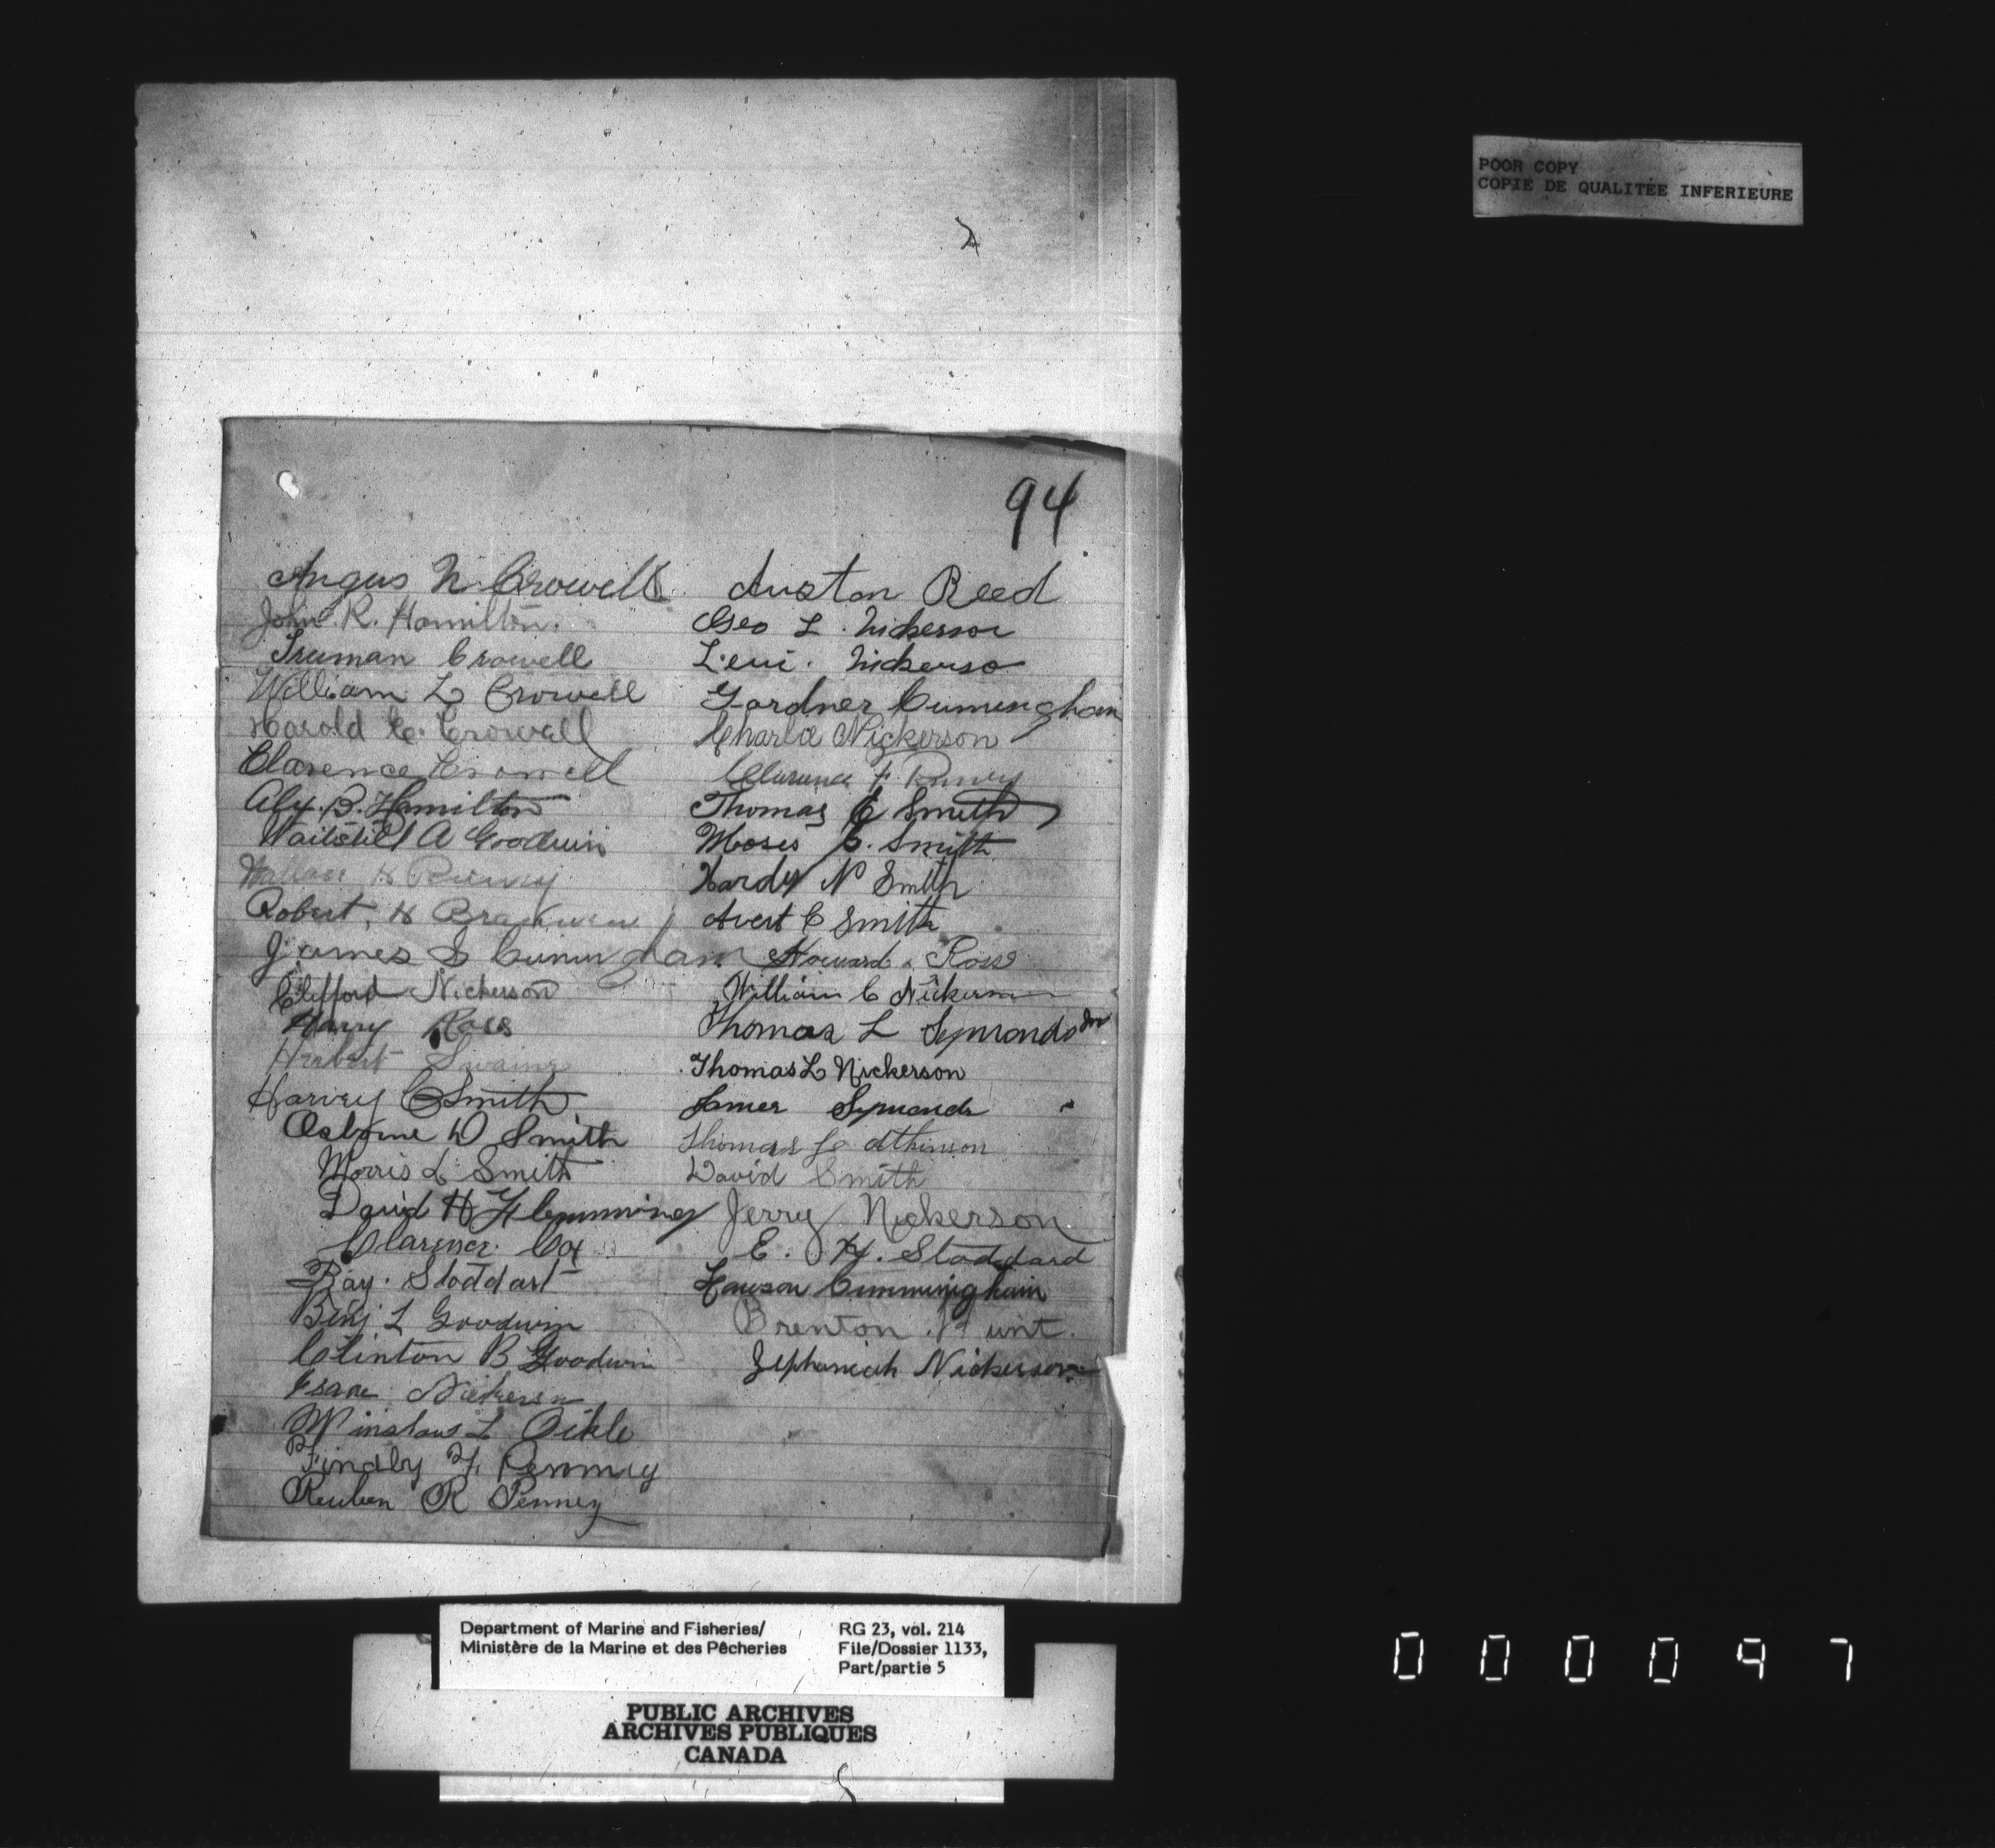 POOR COPY
COPIE DE QUALITÉE INFERIEURE
94
Angus N. Crowell
John R. Hamilton.
Truman Crowell
William L Crowell
Harold C. Crowell
Clarence Crowell
Alex. B. Hamilton
Waitstill A Goodwin
Wallace H
Robert, H
James S Cuningham
Clifford Nickerson
Harry Ross
Herbert Swaine
Harvey C Smith
Osborne D Smith
Morris L Smith
David H Flemming
Clarence Cox
Ray. Stoddart
Benj L Goodwin
Clinton B Goodwin
Isaac Nickerson
Winslow L Oikle
Findly H. Penney
Reuben R Penney
Auston Reed
Geo L. Nickerson
Levi. Nickerso
Gardner Cuningham
Charlie Nickerson
Clarence F.
Thomas E Smith
Moses C. Smith
Hardy N Smith
Avert C Smith
Howard Ross
William C Nickerson
Thomas L Symonds Jr
Thomas L Nickerson
James Symonds
Thomas Atkinson
David Smith
Jerry Nickerson
E. H. Stoddard
Lawson Cunningham
Brenton Hunt.
Zephaniah Nickerson
Department of Marine and Fisheries/
Ministère de la Marine et des Pêcheries
RG 23, vol. 214
File/Dossier 1133,
Part/partie 5
PUBLIC ARCHIVES
ARCHIVES PUBLIQUES
CANADA
000097